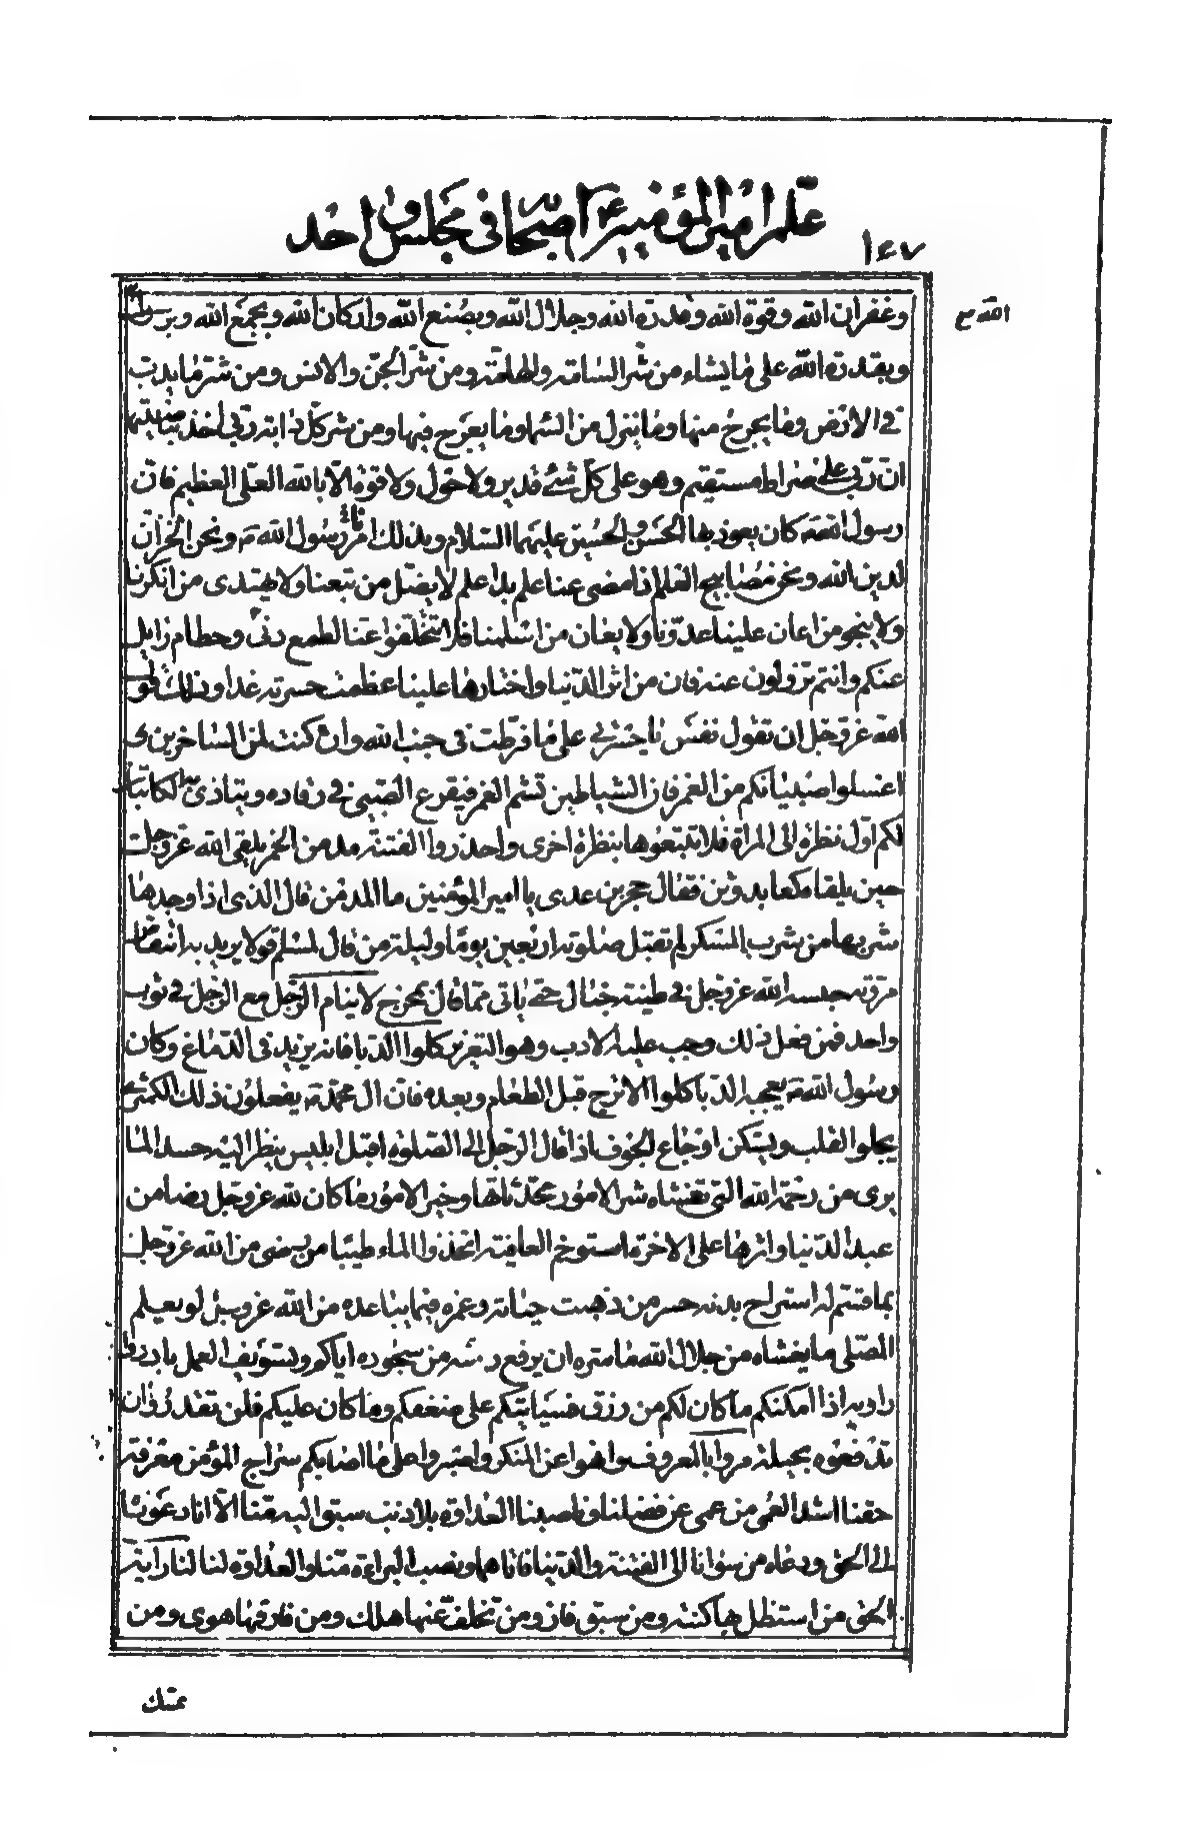 علم امير المؤمنين ع اصحابه في مجلس واحد
١٤٧
وغفران الله وقوة الله وقدرة الله وجلال الله وبصنع الله واركان الله وبجمع الله وبرسول
الله ص
وبقدرة الله على ما يشاء من شر السامة والهامة ومن شر الجن والانس ومن شر ما يدب
في الارض وما يخرج منها وما ينزل من السماء وما يعرج فيها ومن شر كل دابة ربي اخذ بناصيتها
ان ربي على صراط مستقيم وهو على كل شئ قدير ولا حول ولا قوة الا بالله العلي العظيم فان
رسول الله ص كان يعوذ بها الحسن والحسين عليهما السلام وبذلك امرنا رسول الله ص ونحن الخزان
لدين الله ونحن مصابيح العلم اذا مضى عنا علم بدا علم لا يضل من تبعنا ولا يهتدى من انكرنا
ولا ينجو من اعان علينا عدونا ولا يعان من اسلمنا فلا تتخلفوا عنا لطمع دني وحطام زايل
عنكم وانتم تزولون عنه فان من اثر الدنيا واختارها علينا عظمت حسرته غدا وذلك قول
الله عز وجل ان تقول نفس يا حسرتي على ما فرطت في جنب الله وان كنت لمن الساخرين
اغسلوا صبيانكم من الغمر فان الشياطين تشم الغمر فيفزع الصبي في رقاده ويتاذى به الكاتبان
لكم اول نظرة الى المراة فلا تتبعوها بنظرة اخرى واحذروا الفتنة مدمن الخمر يلقى الله عز وجل
حين يلقاه كعابد وثن فقال حجر بن عدي يا امير المؤمنين ما المدمن قال الذي اذا وجدها
شربها من شرب المسكر لم تقبل صلوته اربعين يوما وليلة من قال لمسلم قولا يريد به انتقاص
مروته حبسه الله عز وجل في طينة خبال حتى ياتي مما قال بمخرج لا ينام الرجل مع الرجل في ثوب
واحد فمن فعل ذلك وجب عليه الادب وهو التعزير كلوا الدبا فانه يزيد في الدماغ وكان
رسول الله ص يعجبه الدبا كلوا الاترج قبل الطعام وبعده فان ال محمد ص يفعلون ذلك الكمثرى
يجلوا القلب ويسكن اوجاع الجوف اذا قال الرجل الى الصلوة اقبل ابليس ينظر اليه حسدا لما
يرى من رحمة الله التي تغشاه شر الامور محدثاتها وخير الامور ما كان لله عز وجل رضا من
عبد الدنيا واثرها على الاخرة استوخم العاقبة اتخذوا الماء طيبا من رضي من الله عز وجل
بما قسم له استراح بدنه خسر من ذهبت حياته وعمره فيما يباعده من الله عز وجل لو يعلم
المصلى ما يغشاه من جلال الله ما سره ان يرفع راسه من سجوده اياكم وتسويف العمل بادروا
به اذا امكنكم ما كان لكم من رزق فسياتيكم على ضعفكم وما كان عليكم فلن تقدروا ان
تدفعوه بحيلة مروا بالمعروف وانهوا عن المنكر واصبروا على ما اصابكم سراج المؤمن معرفة
حقنا اشد العمى من عمى عن فضلنا وناصبنا العداوة بلا ذنب سبق اليه منا الا انا دعوناه
الى الحق ودعاه من سوانا الى الفتنة والدنيا فاتاهما ونصب البراءة منا والعداوة لنا لنا راية
الحق من استظل بها كنته ومن سبق فاز ومن تخلف عنها هلك ومن فارقها هوى ومن
تمسك